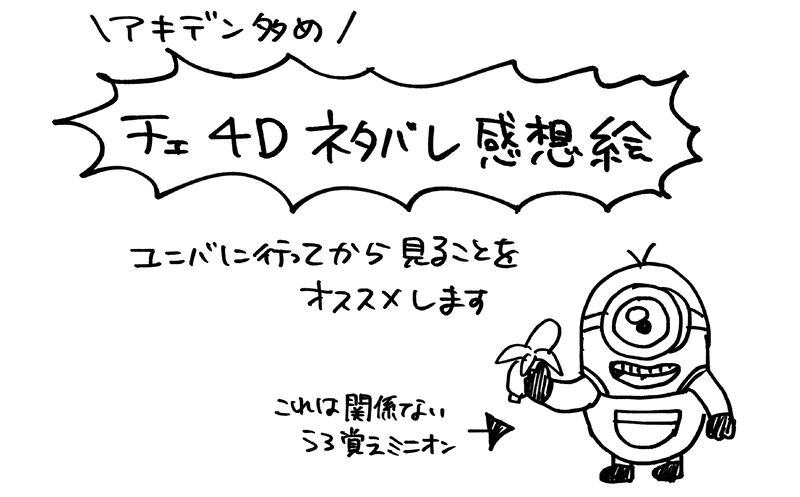 \アキデン多め/
チェ4Dネタバレ感想絵
ユニバに行ってから見ることを
オススメします
これは関係ない
うろ覚えミニオン